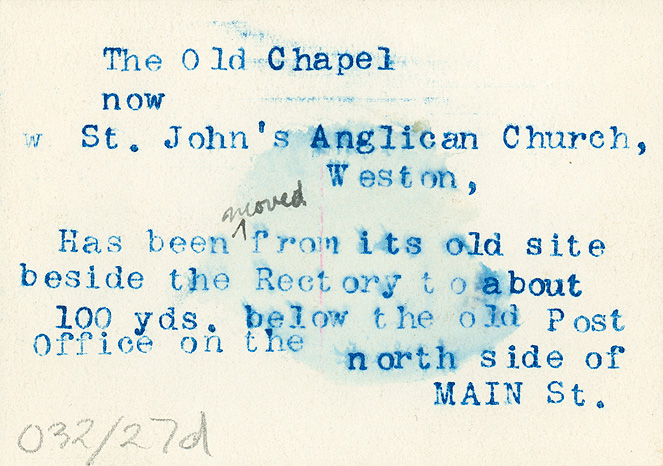 The Old Chapel
now
w St. John's Anglican Church,
Weston,
moved
Has been from its old site
beside the Rectory to about
100 yds. below the old Post
Office on the north side of
MAIN St.
032/27d